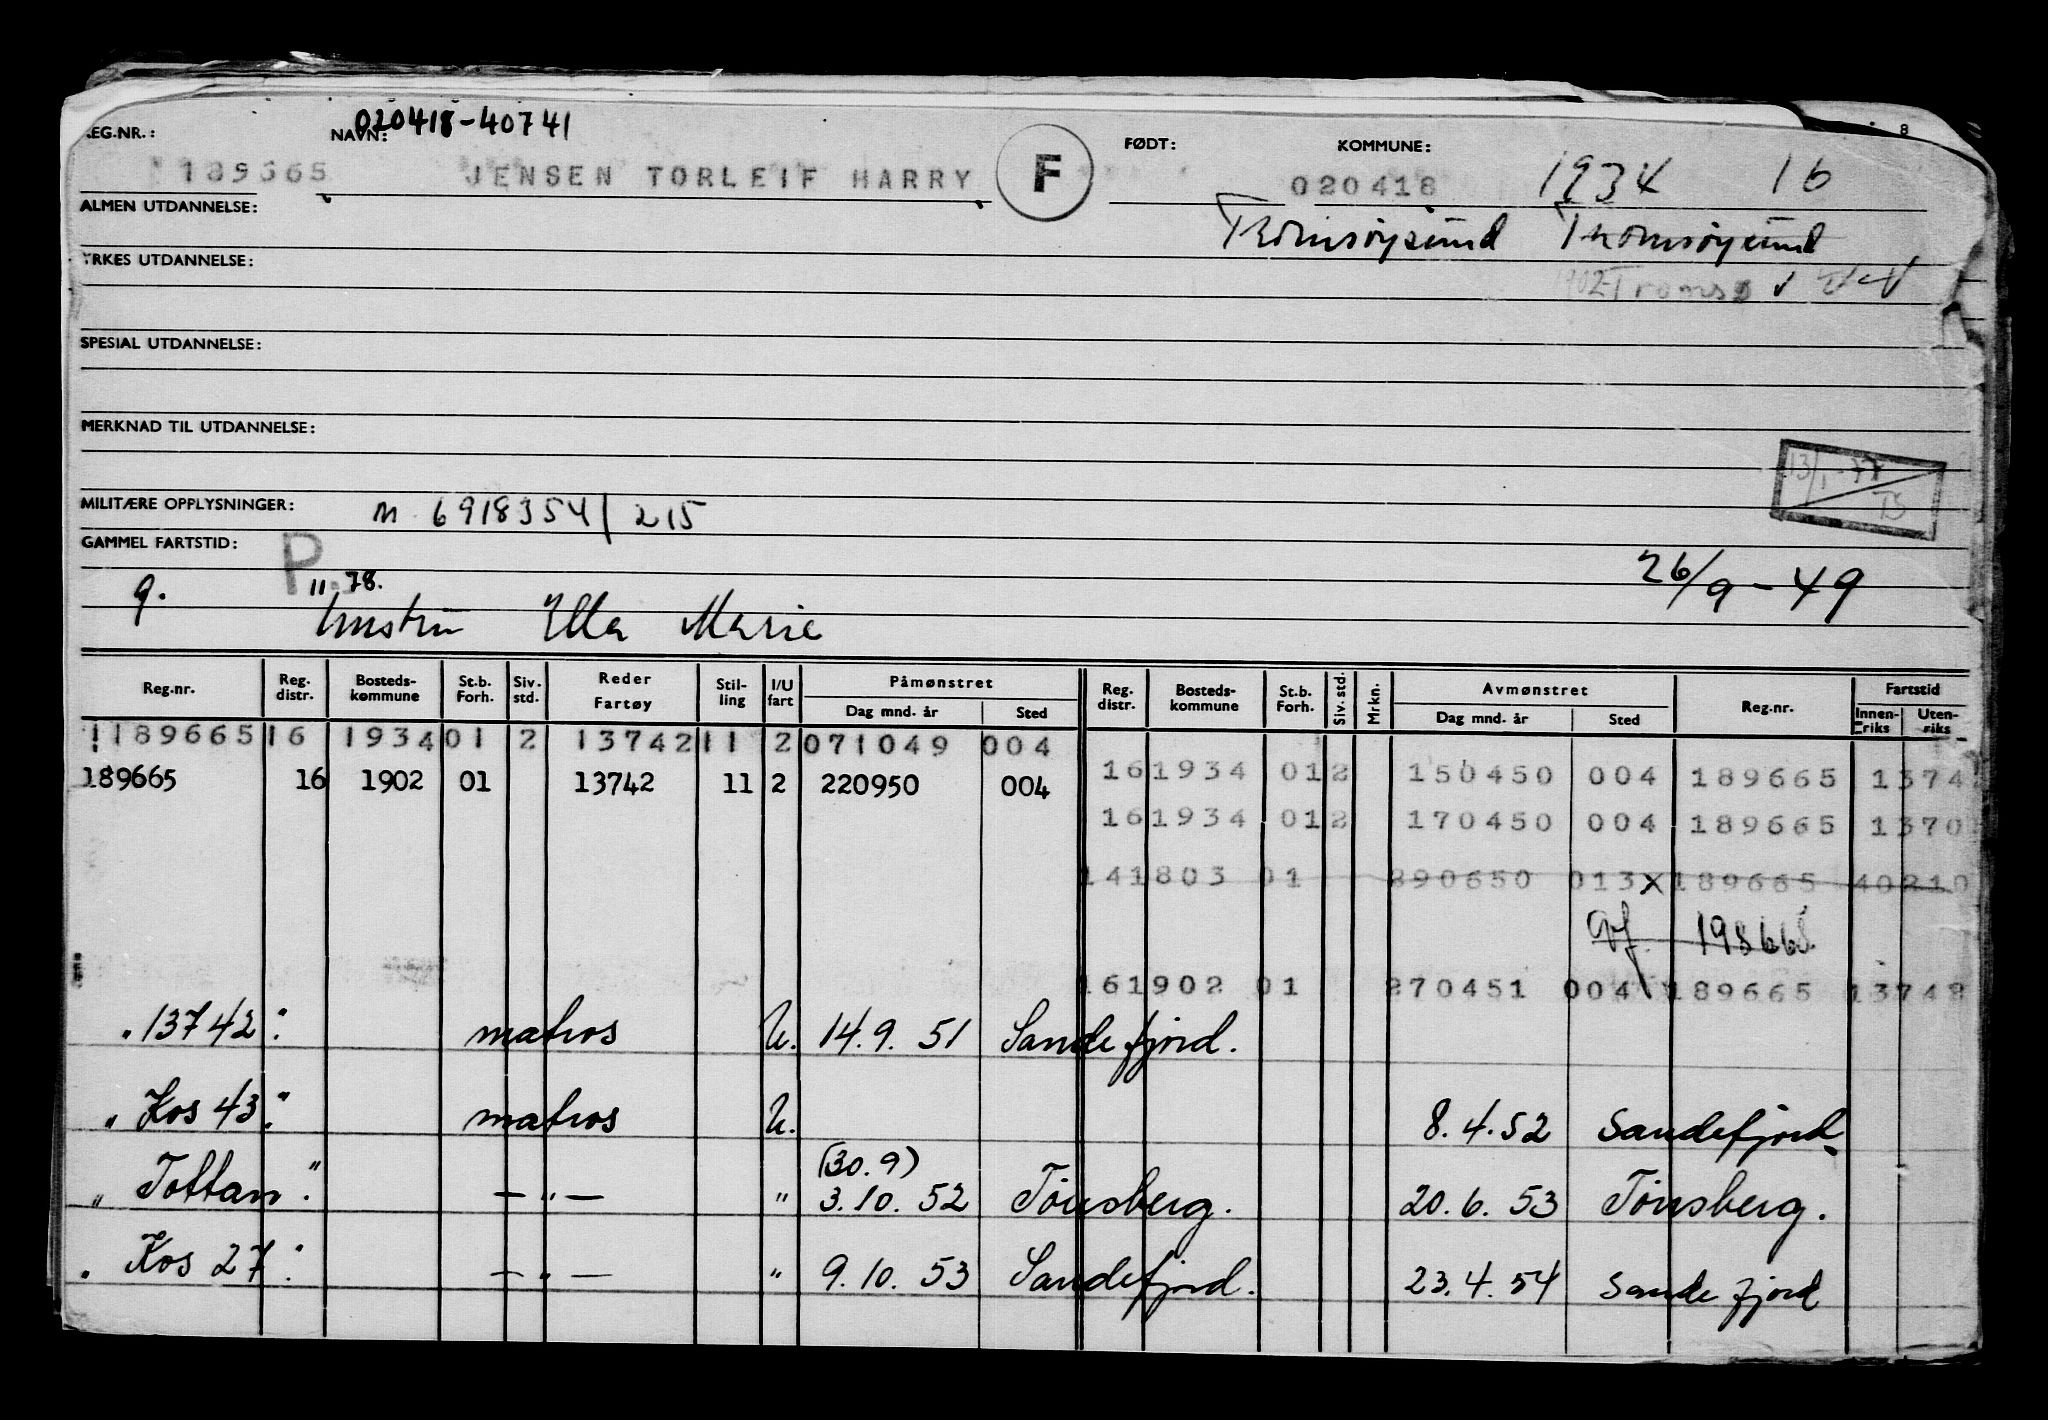 020418-40741
REG.NR.: NAVN: FØDT: KOMMUNE:
189665 JENSEN TORLEIF HARRY F 020418 1934 16
ALMEN UTDANNELSE: Tromsøysund Tromsøysund
YRKES UTDANNELSE: 1902 Tromsø
SPESIAL UTDANNELSE:
MERKNAD TIL UTDANNELSE:
13/1-77
TS
MILITÆRE OPPLYSNINGER: M 6918354/215
GAMMEL FARTSTID: P. 26/9-49
g. 11.78.
hustru Ella Marie
Reg.nr. Reg. distr. Bosteds-kommune St.b. Forh. Siv. std. Reder Fartøy Stil-ling I/U fart Påmønstret Dag mnd. år Sted Reg. distr. Bosteds-kommune St.b. Forh. Siv. std. Mrkn. Avmønstret Dag mnd. år Sted Reg.nr. Fartstid Innen-riks Uten-riks
1189665 16 1934 01 2 13742 11 2 071049 004
16 1934 01 2 150450 004 189665 1374
189665 16 1902 01 13742 11 2 220950 004
16 1934 01 2 170450 004 189665 1370
14 1803 01 290650 013 X 189665 40210
198665
16 1902 01 270451 004 189665 13742
"13742" matros U. 14.9.51 Sandefjord.
"Kos 43" matros U. 8.4.52 Sandefjord
(30.9)
"Tottan" —"— " 3.10.52 Tønsberg. 20.6.53 Tønsberg.
"Kos 27" —"— " 9.10.53 Sandefjord. 23.4.54 Sandefjord